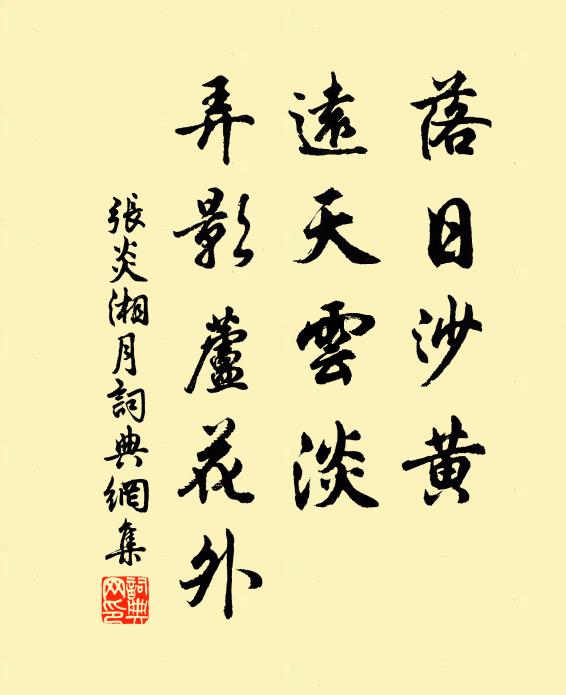 落日沙黄
遠天雲淡
弄影蘆花外
張炎湘月詞典網集
詞典網印